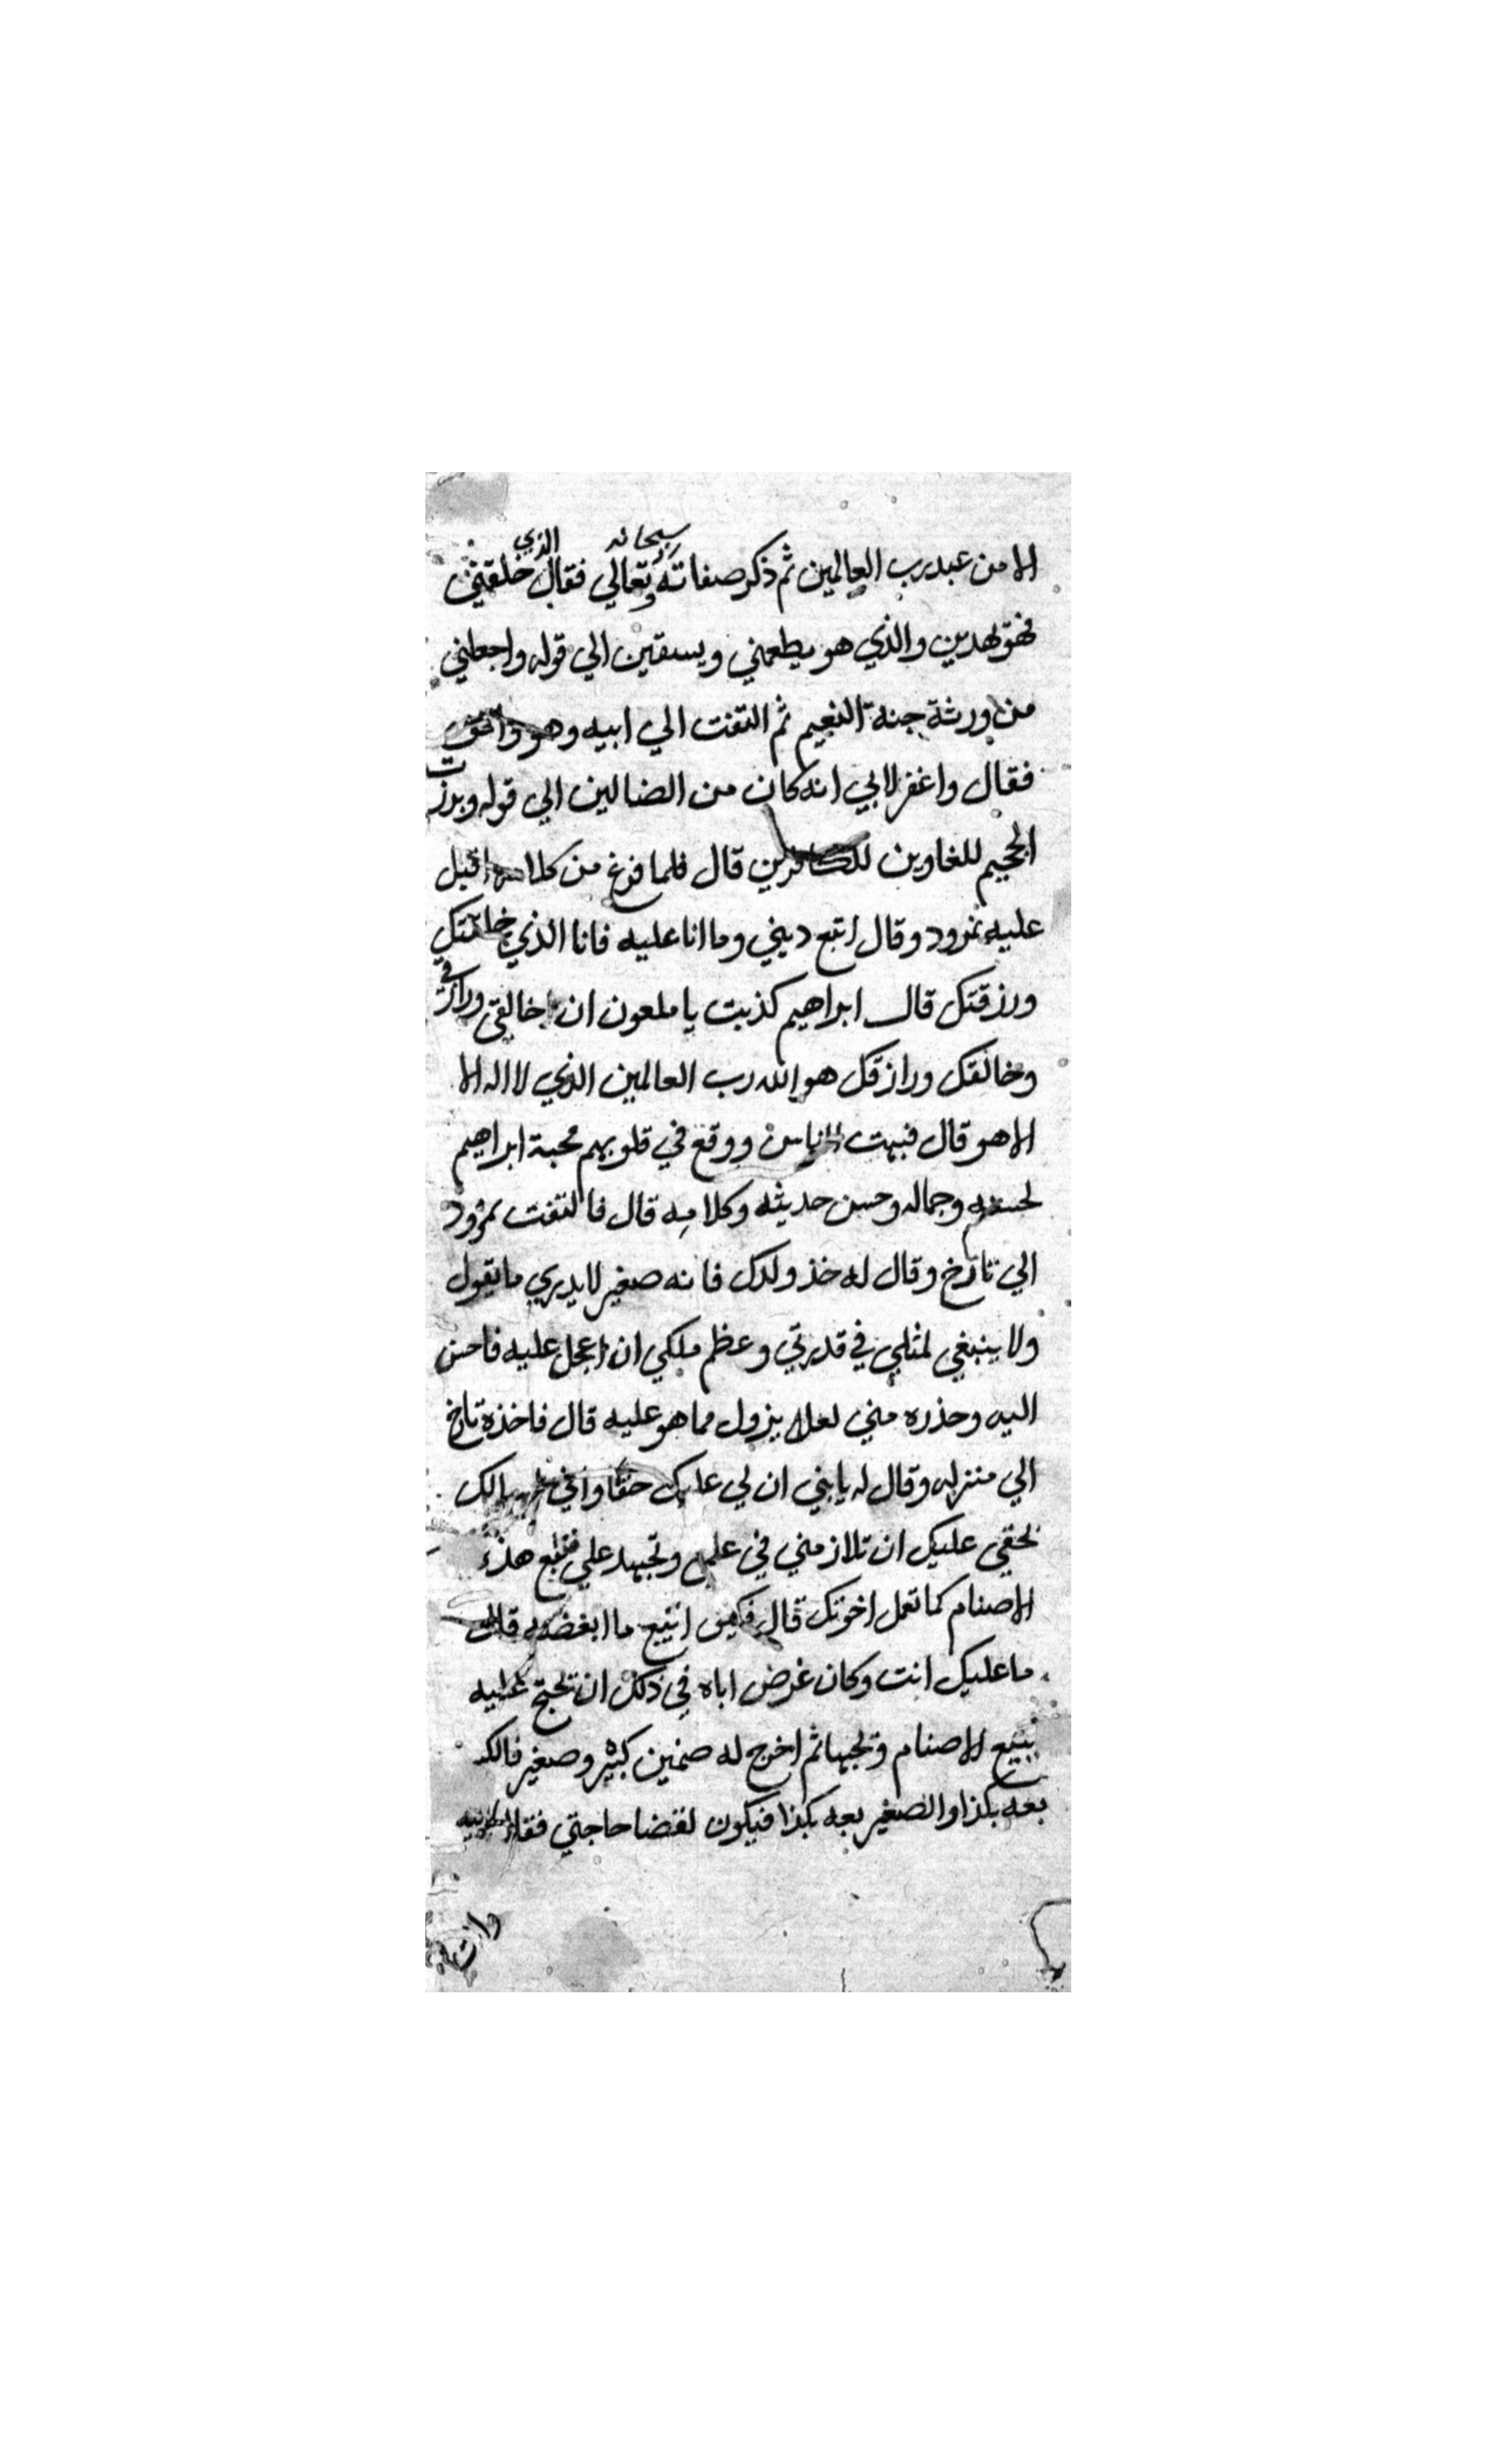 الا من عبد رب العالمين ثم ذكر صفاته سبحانه وتعالي فقال الذي خلقني
فهو يهدين والذي هو يطعمني ويسقين الي قوله واجعلني
من ورثة جنة النعيم ثم التفت الي ابيه وهو واقف
فقال واغفر لابي انه كان من الضالين الي قوله وبرزت
الجحيم للغاوين للكافرين قال فلما فرغ من كلامه اقبل
عليه نمرود وقال اتبع ديني وما انا عليه فانا الذي خلقتك
ورزقتك قال ابراهيم كذبت يا ملعون ان خالقي ورازقي
وخالقك ورازقك هو الله رب العالمين الذي لا اله الا
الا هو قال فبهت الناس ووقع في قلوبهم محبة ابراهيم
لحسنه وجماله وحسن حديثه وكلامه قال فالتفت نمرود
الي تارخ وقال له خذ ولدك فانه صغير لا يدري ما يقول
ولا ينبغي لمثلي في قدرتي وعظم ملكي ان اعجل عليه فاحسن
اليه وحذره مني لعلا يزول مما هو عليه قال فاخذه تارخ
الي منزله وقال له يا بني ان لي عليك حقا واني
لحقي عليك ان تلازمني في علمي وتجهد علي هذه
الاصنام كما تعمل اخوتك قال فكيف ابيع ما ابغضه قال
ما عليك انت وكان غرض اباه في ذلك ان تحتج عليه
ببيع الاصنام وتجبها ثم اخرج له صنمين كبير وصغير
بعه بكذا والصغير بعه بكذا فيكون لقضا حاجتي فقال